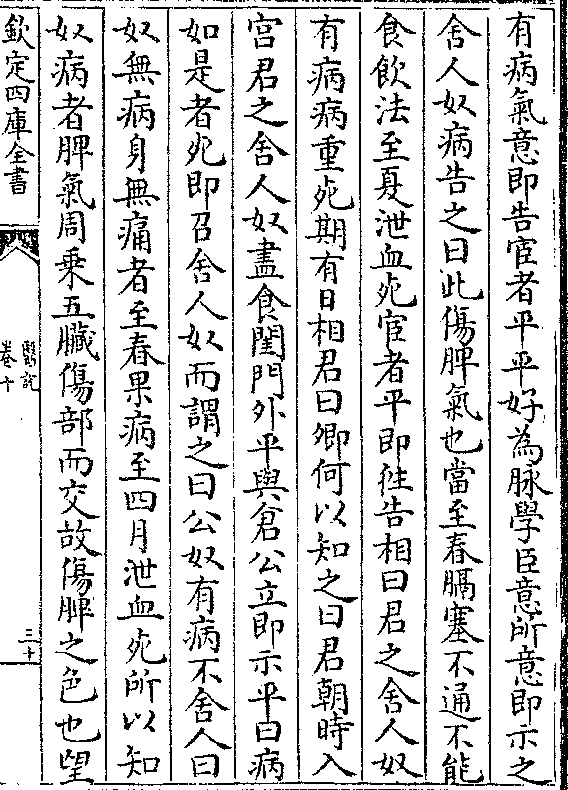 有病氣意即告宦者平平好為脉學臣意所意即示之
舍人奴病告之曰此傷脾氣也當至春膈塞不通不能
食飲法至夏泄血死宦者平即徃告相曰君之舍人奴
有病病重死期有日相君曰卿何以知之曰君朝時入
宫君之舍人奴盡食閨門外平與倉公立即示平曰病
如是者死即召舍人奴而謂之曰公奴有病不舍人曰
奴無病身無痛者至春果病至四月泄血死所以知
奴病者脾氣周乗五臟傷部而交故傷脾之色也望
欽定四庫全書
醫說
卷十
三十